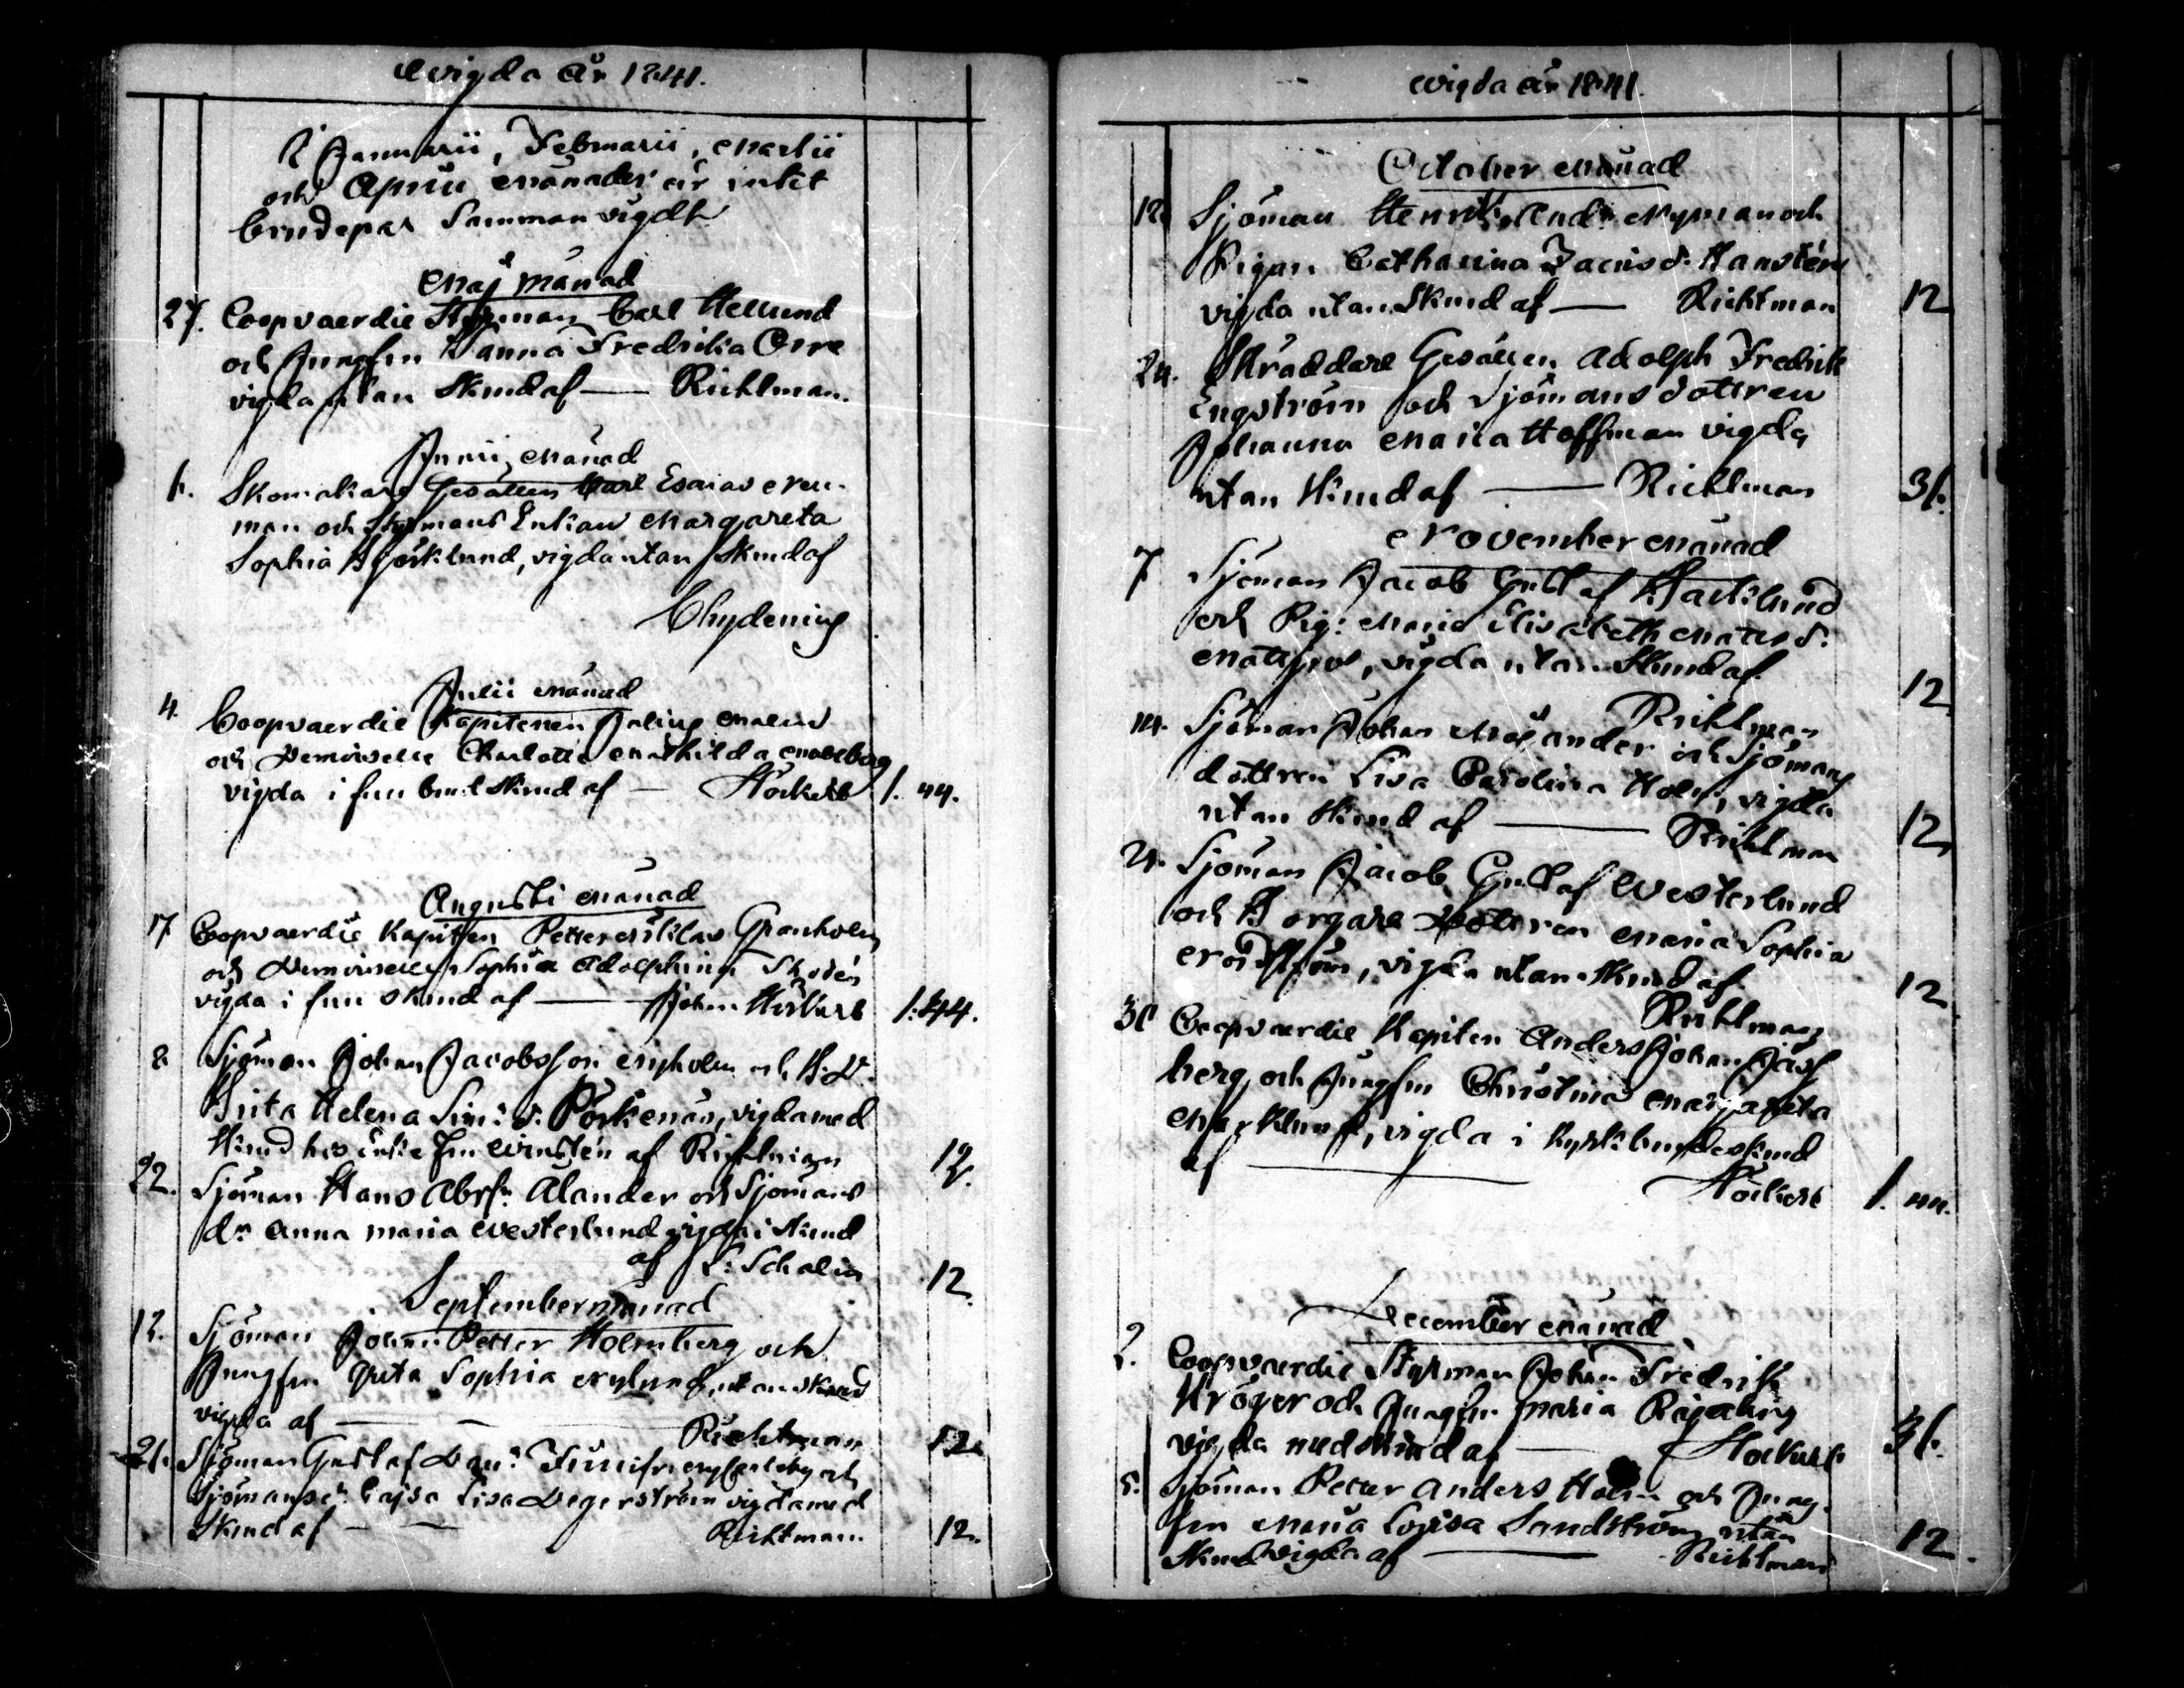 Wigda År 1841.
I Januarii, Februarii, Martii
och Aprill Månader är intet
brudepar Samman vigdt
Maj Månad
27. Coopvaerdie Styrman Carl Hellund
och Jungfrun Hanna Fredrika Orre
vigda utan Skrud af — Richtman.
Junii Månad
1. Skomakare Gesällen Carl Esaias
man och Styrmans Enkan Margareta
Sophia Björklund, vigda utan Skrud af
Chydenius
Julii Månad
4. Coopvaerdie Kapitenen Julius Malin
och Demoiselle Charlotta Mathilda Malmberg
vigda i full brud Skrud af — Höckert 1. 44.
Augusti Månad
17 Coopvaerdie Kapiten Petter Niklas Granholm
och Demoiselle Sophia Adolphina
vigda i full skrud af — Johan Höckert 1. 44.
8 Sjöman Johan Jacobsson Nyholm och B:D.
Brita Helena Sim: d:, vigda med
Skrud hos Enke Fru Winstén af Richtman 12.
22. Sjöman Hans Abrs:n Ålander och Sjömans
d:r Anna Maria Westerlund vigda i Skrud
af L: Schalin 12.
September Månad
12. Sjöman Johan Petter Holmberg och
Jungfrun Greta Sophia Nylund, utan skrud
vigda af — Richtman 12.
Sjöman Gustaf Dan: och
Sjömans d:r Cajsa Lisa Degerström vigda med
Skrud af — Richtman 12.
Wigda År 1841.
October Månad
12 Sjöman Henrik And: Nyman och
Pigan Catharina Jacus d: Hanstén
vigda utan Skrud af — Richtman 12
24. Skräddare Gesällen Adolph Fredrik
Engström och Sjömans dottren
Johanna Maria Hoffman vigda
utan Skrud af — Richtman 36.
November Månad
7 Sjöman Jacob Gustaf Backlund
och Pig: Maria Elisabeth Matts d:
, vigda utan Skrud af
Richtman 12
14. Sjöman Johan Molander och Sjömans
dottren Lisa Carolina Holm, vigda
utan Skrud af — Richtman 12
21. Sjöman Jacob Gustaf Westerlund
och Borgare Dottren Maria Sophia
Nordström, vigda utan Skrud af
Richtman 12
30 Coopvaerdie Kapiten Anders Johan
berg och Jungfrun Christina Margareta
Marklund, vigda i Kyrk: brudeskrud
af — Höckert 1. 44.
December Månad
2. Coopvaerdie Styrman Johan Fredrik
Kröger och Jungfrun Maria Rajaling
vigda med skrud af — Höckert 36.
5. Sjöman Petter Anders Holm och Jung-
frun Maria Lovisa Sandström utan
Skrud vigda af — Richtman 12.